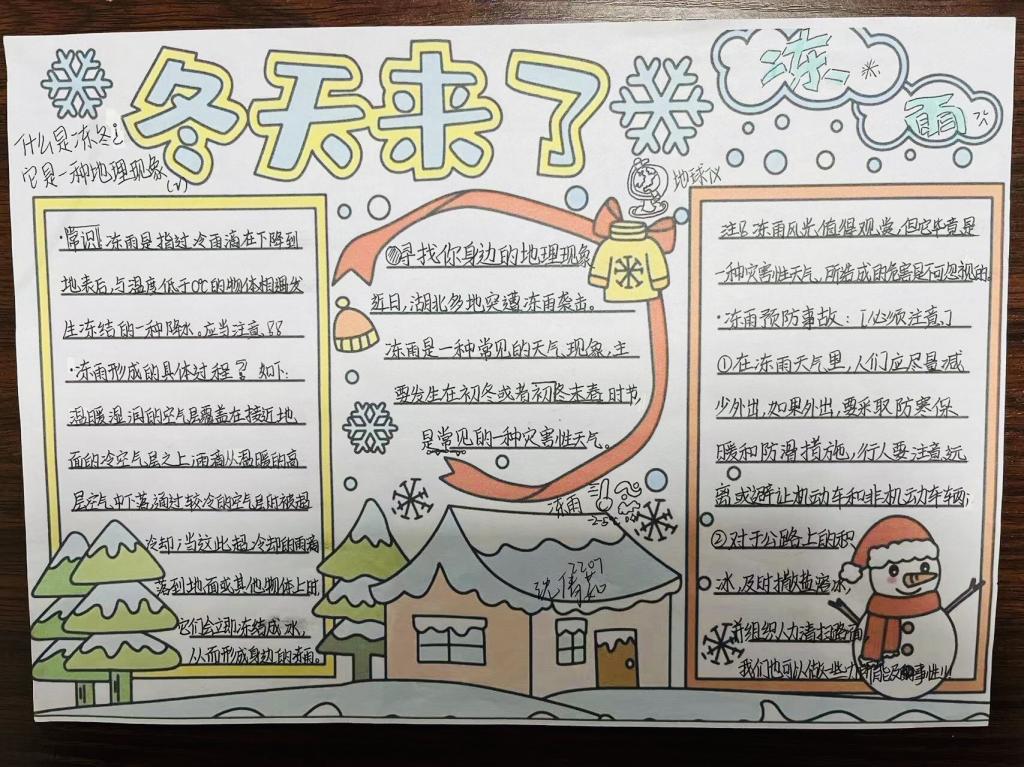 冬天来了
冻
雨
什么是冻冬?
它是一种地理现象
地球仪
·常识 冻雨是指过冷雨滴在下降到
地表后,与温度低于0℃的物体相遇发
生冻结的一种降水。应当注意!!
·冻雨形成的具体过程? 如下:
温暖湿润的空气层覆盖在接近地
面的冷空气层之上,雨滴从温暖的高
层空气中下落,通过较冷的空气层时被超
冷却;当这些超冷却的雨滴
落到地面或其他物体上时,
它们会立即冻结成冰,
从而形成身边的冻雨。
寻找你身边的地理现象
近日,湖北多地突遭冻雨袭击。
冻雨是一种常见的天气现象,主
要发生在初冬或者初冬末春时节,
是常见的一种灾害性天气。
冻雨
-2-5℃
2207
注: 冻雨风光值得观赏,但它毕竟是
一种灾害性天气,所造成的危害是不可忽视的。
·冻雨预防事故:[必须注意]
①在冻雨天气里,人们应尽量减
少外出,如果外出,要采取防寒保
暖和防滑措施,行人要注意远
离或避让机动车和非机动车辆;
②对于公路上的积
冰,及时撒盐溶冰,
并组织人力清扫路面,
我们也可以做一些力所能及的事性!!